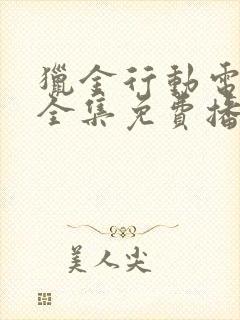 獵金行動電
全集免費播
美人尖